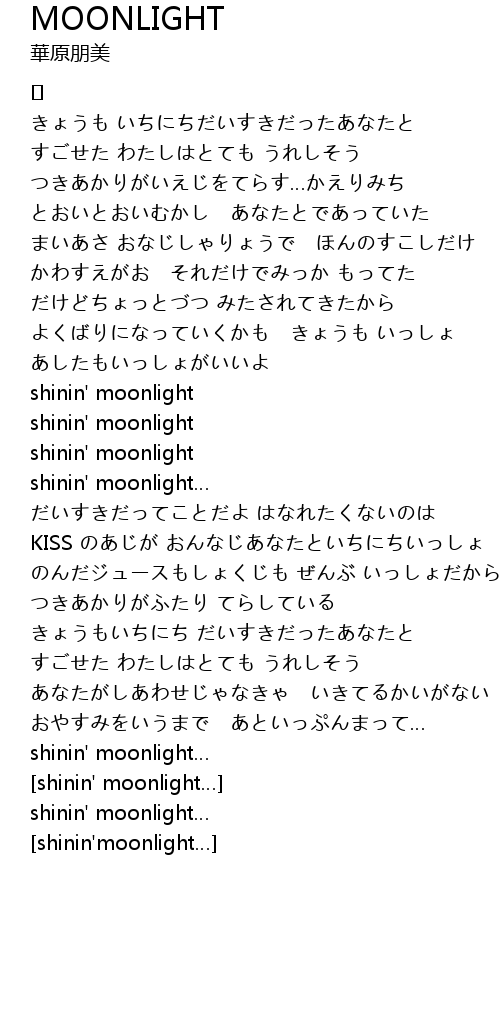 MOONLIGHT
華原朋美
[]
きょうも いちにちだいすきだったあなたと
すごせた わたしはとても うれしそう
つきあかりがいえじをてらす...かえりみち
とおいとおいむかし　あなたとであっていた
まいあさ おなじしゃりょうで　ほんのすこしだけ
かわすえがお　それだけでみっか もってた
だけどちょっとづつ みたされてきたから
よくばりになっていくかも　きょうも いっしょ
あしたもいっしょがいいよ
shinin' moonlight
shinin' moonlight
shinin' moonlight
shinin' moonlight...
だいすきだってことだよ はなれたくないのは
KISS のあじが おんなじあなたといちにちいっしょ
のんだジュースもしょくじも ぜんぶ いっしょだから
つきあかりがふたり てらしている
きょうもいちにち だいすきだったあなたと
すごせた わたしはとても うれしそう
あなたがしあわせじゃなきゃ　いきてるかいがない
おやすみをいうまで　あといっぷんまって...
shinin' moonlight...
[shinin' moonlight...]
shinin' moonlight...
[shinin'moonlight...]